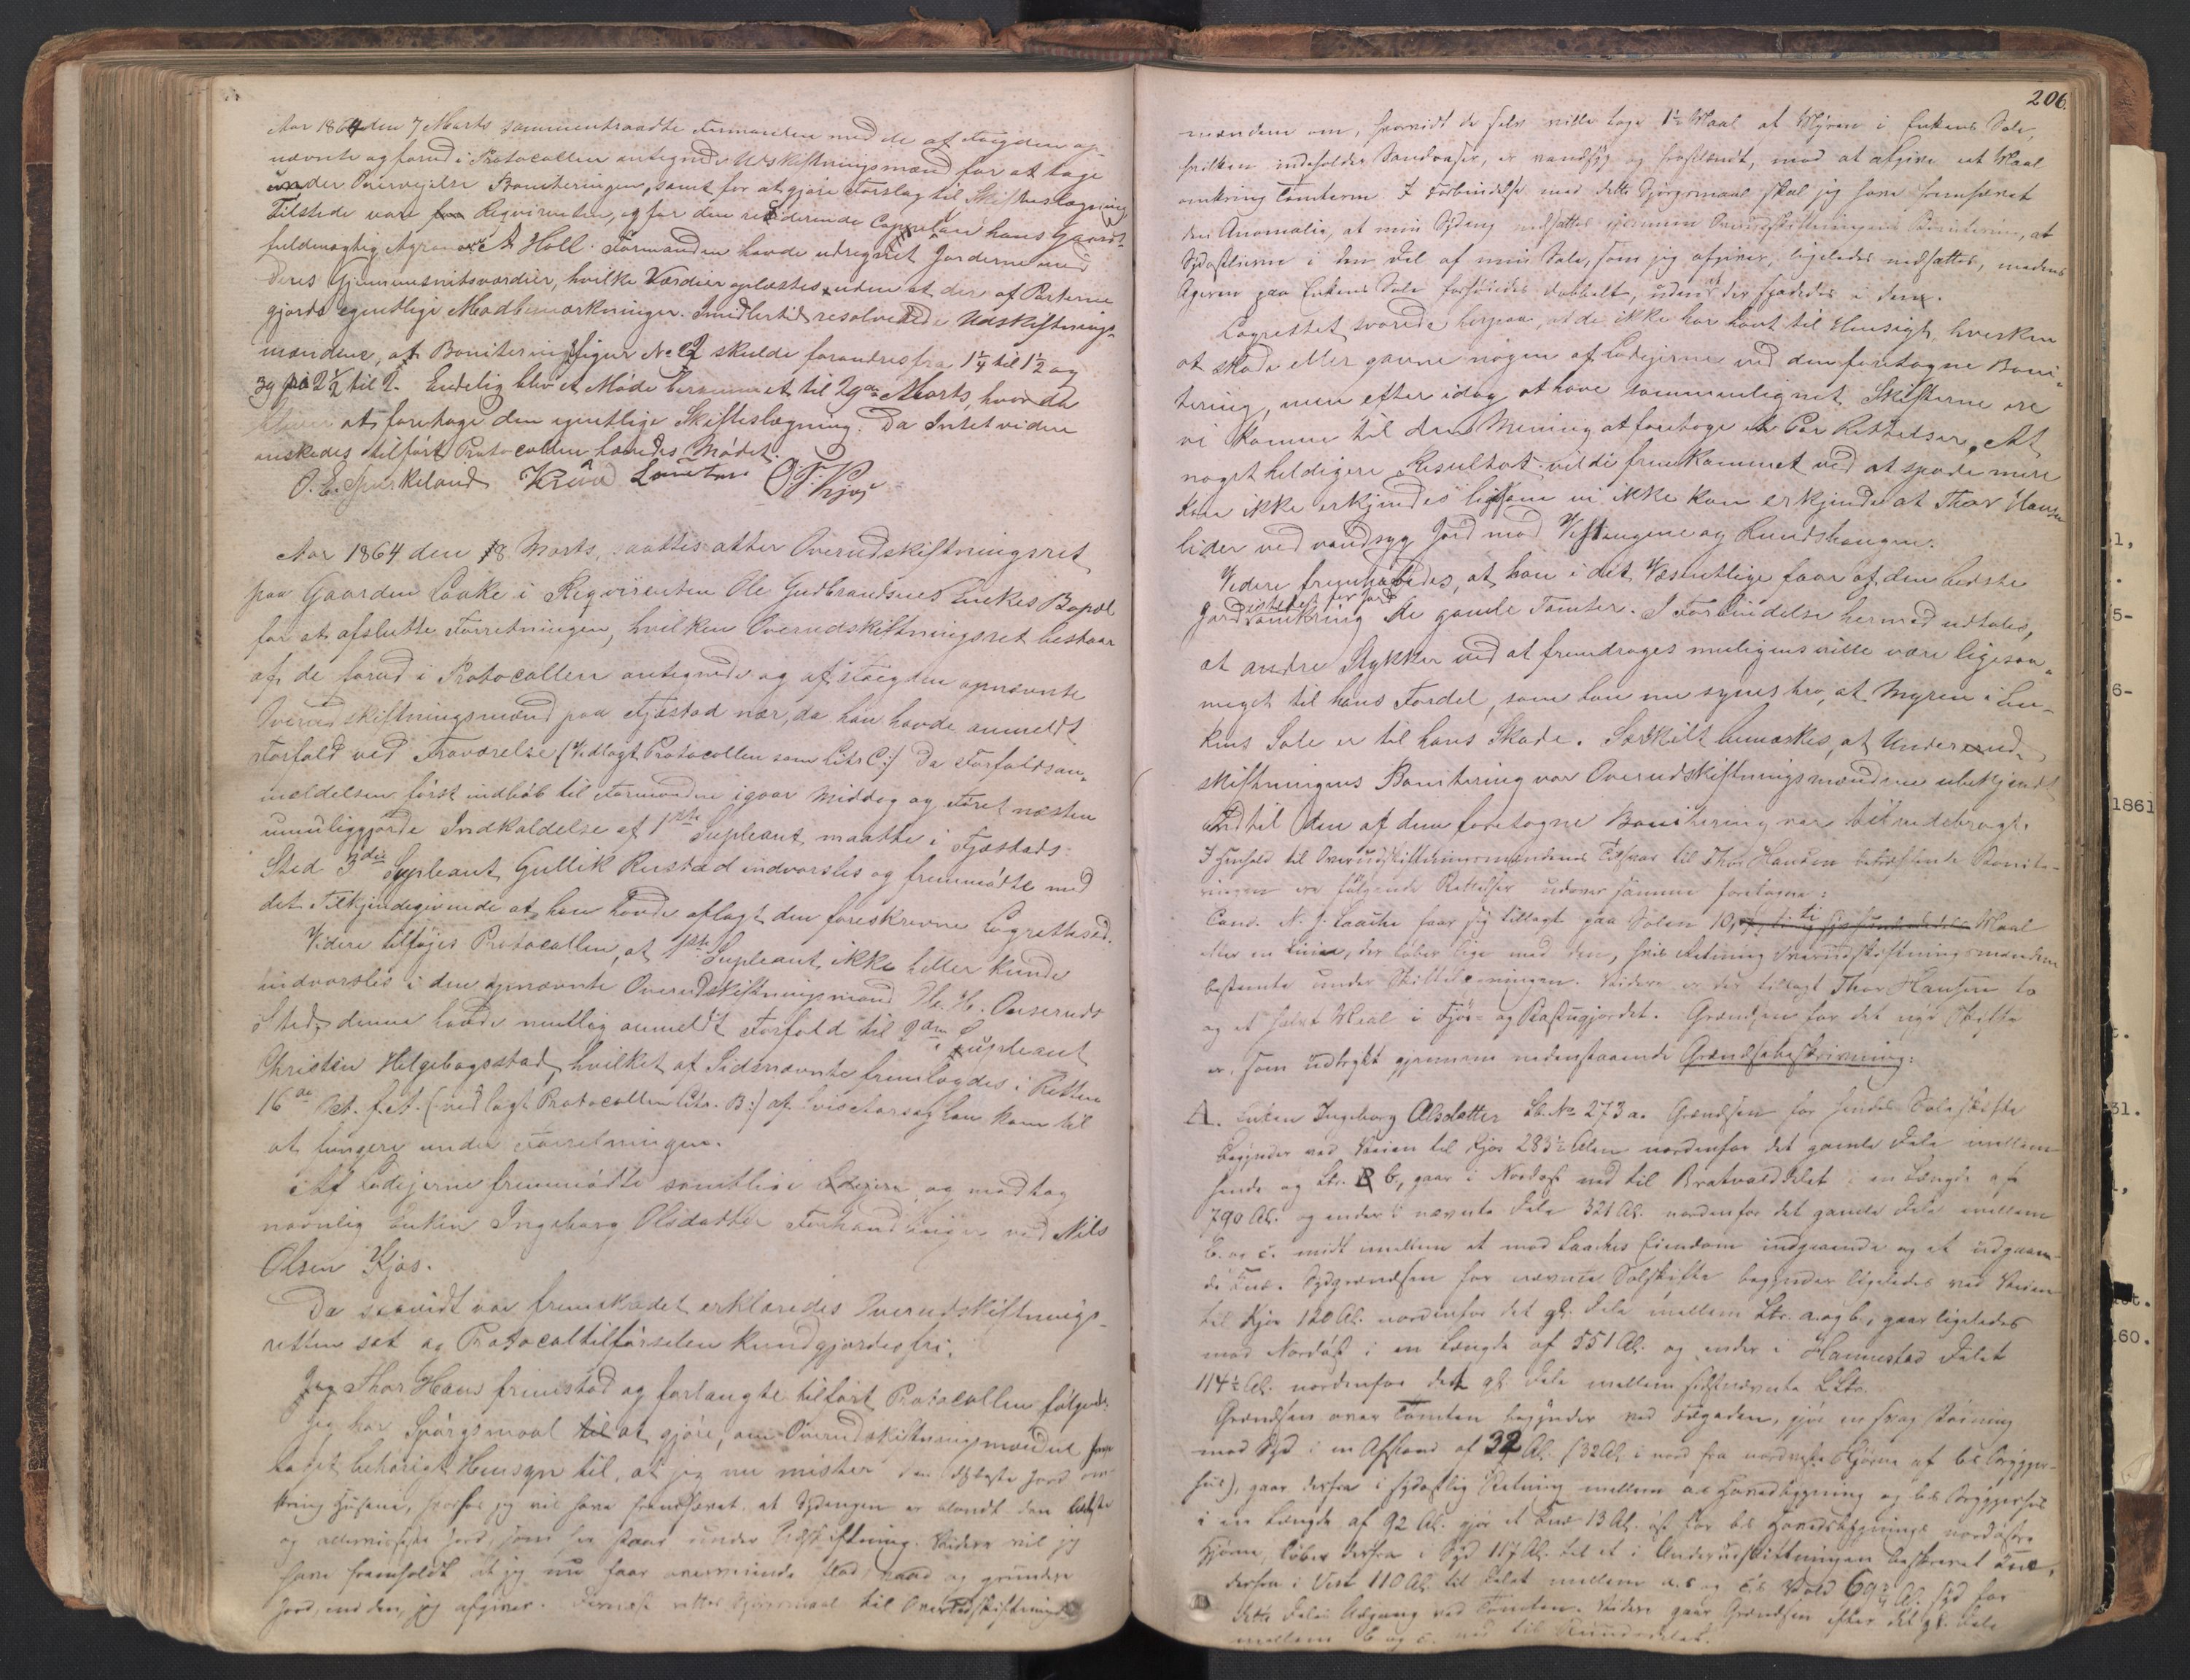 Aar 1864 den 7 Marts sammentraadte Formanden med de af Fogden op-
nævnte og forud i Protocollen antegnede Udskiftningsmænd for at tage
under Overveielse Boniteringen, samt for at gjøre Forslag til Skifteslægning
Tilstede vare Reqvirenten, og for den residerende Cappelan hans Gaards-
fuldmægtig Agronom A. Holl. Formanden havde udregnet Jorderne med
deres Gjennemsnitsværdier, hvilke Værdier oplæstes, uden at der af Parterne
gjordes egentlige Modbemærkninger. Imidlertid resolverede Udskiftnings-
mændene, at Boniteringsfigur No 2 skulde forandres fra 1 1/4 til 1 1/2 og
39 fra 2 1/2 til 2. Endelig blev et Møde berammet til 29de Marts, hvor da
bliver at foretage den egentlige Skifteslægning. Da Intet videre
ønskedes tilført Protocollen hævedes Mødet.
O. E. Spirkeland
Aar 1864 den 18 Marts, sattes atter Overudskiftningsret
paa Gaarden Laake i Reqvirenten Ole Gudbrandsens Enkes Bopæl
for at afslutte Forretningen, hvilken Overudskiftningsret bestaar
af de forud i Protocollen antegnede og af Fogden opnævnte
Overudskiftningsmænd paa Fjæstad nær, da han havde anmeldt
Forfald ved Fraværelse (Vedlagt Protocollen som Litr C:) Da Forfaldsan-
meldelsen først indløb til Formanden igaar Middag og Føret næsten
umuliggjorde Indkaldelse af 1ste Supleant, maatte i Fjæstads
Sted 3die Supleant Gullik Rustad indvarsles og fremmødte med
det Tilkjendegivende at han havde aflagt den foreskrevne Lagrettesed.
Videre tilføies Protocollen, at 1ste Supleant ikke heller kunde
indvarsles i den opnævnte Overudskiftningsmand H. H. Onseruds
Sted, denne havde nemlig anmeldt Forfald til 2den Supleant
Christen Helgebogstad, hvilket af Sidsnævnte fremlagdes i Retten
16de Oct. f. A. (vedlagt Protocollen Litr. B:) af hvis Aarsag han kom til
at fungere under Forretningen.
Af Lodejerne fremmødte samtlige Lodejere, og modtog
navnlig Enken Ingeborg Olsdatter Forhandlinger ved Nils
Olsen Kjos.
Da saavidt var fremskredet erklæredes Overudskiftnings-
retten sat og Protocoltilførselen kundgjordes fri.
Thor Hans fremstod og forlangte tilført Protocollen følgende:
Jeg har Spørgsmaal at gjøre, om Overudskiftningsmændene have
taget behørigt Hensyn til, at jeg nu mister den bedste Jord om-
kring Husene, hvorfor jeg vil have fremhævet at Sydengen er blandt den bedste
og allervisseste Jord, som her staar under Udskiftning. Videre vil jeg
have fremholdt at jeg nu faar grundere
Jord, end den, jeg afgiver. Dernæst rettes Spørgsmaal til Overudskiftnings-
206.
mændene om, hvorvidt de selv ville tage 1 1/2 Maal af Myren i Enkens Sole,
hvilken indeholder Sandaser, er vandsyg og frostlændt, mod at afgive eet Maal
omkring Tomterne. I Forbindelse med dette Spørgsmaal skal jeg have fremhævet
den Anomalie, at min Sydeng nedsættes gjennem Overudskiftningens Bonitering, at
i den Del af min Sole, som jeg afgiver, ligeledes nedsættes, medens
Ageren paa Enkens Sole forhøiedes dobbelt, uden at der spadedes i den.
Lagrettet svarede herpaa, at de ikke har havt til Hensigt, hverken
at skade eller gavne nogen af Lodejerne ved den foretagne Boni-
tering, men efter idag at have sammenlignet Skifterne ere
vi komne til den Mening at foretage et Par Rettelser. At
noget heldigere Resultat vilde fremkommet ved at spade mere
kan ikke erkjendes ligesom vi ikke kan erkjende at Thor Hansen
lider ved vandsyg Jord mod Vestengene og Rundshaugen.
Videre fremholdes, at han i det Væsentlige faar af den bedste
Jord istedet for Jord omkring de gamle Tomter. I Forbindelse hermed udtales,
at andre Stykker ved at fremdrages muligens ville være ligesaa
meget til hans Fordel, som han nu synes tro, at Myren i En-
kens Sole er til hans Skade. Særskilt bemærkes, at Underud-
skiftningens Bonitering var Overudskiftningsmændene ubekjendt
indtil den af dem foretagne Bonitering var tilendebragt.
I Henhold til Overudskiftningsmændenes Tilsvar til Thor Hansen betræffende Bonite-
ringen ere følgende Rettelser udover samme foretagne:
Cand. N. J. Laache faar sig tillagt paa Solen 10, Maal
eller en Linie, der løber lige med den, hvis Retning Overudskiftningsmændene
bestemte under Skiftelægningen. Videre er der tillagt Thor Hansen to
og et halvt Maal i Fjøs- og Rastugjordet. Grændsen for det nye Skifte
er, som udtrykt gjennem nedenstaaende Grændsebeskrivning:
A. Enken Ingeborg Olsdatter Lb. No 273 a. Grændsen for hendes Soleskifte
begynder ved Veien til Kjos 283 1/2 Alen nordenfor det gamle Dele imellem
hende og Ltr. b, gaar i Nordost ned til Bratvolddelet i en Længde af
790 Al. og ender i nævnte Dele 321 Al. nordenfor det gamle Dele mellem
b. og c. midt mellem et mod Laaches Eiendom indgaaende og et udgaaen-
de Knæ. Sydgrændsen for nævnte Solskifte begynder ligeledes ved Veien
til Kjos 120 Al. nordenfor det gl. Dele mellem Ltr. a. og b., gaar ligeledes
mod Nordøst i en Længde af 551 Al. og ender i Hannestad Delet
114 1/2 Al. nordenfor det gl. Dele mellem sidstnævnte L Ltr.
Grændsen over Tomten begynder ved Fægaden, gjør en svag Bøining
mod Syd i en Afstand af 32 Al. (32 Al. i nord fra nordvestre Hjørne af b's Brygger-
hus), gaar derfra i sydostlig Retning mellem a's Hovedbygning og b's Bryggerhus
i en Længde af 92 Al. gjør et Knæ 13 Al. øst for b's Hovedbygnings nordøstre
Hjørne, løber derfra i Syd 117 Al. til et i Underudskiftningen beskrevet Knæ,
derfra i Vest 110 Al. til Delet mellem a.s og c.s Vold 69 3/4 Al. syd for
dette Deles Udgang ved Tomten. Videre gaar Grændsen efter det gl. Dele
mellem b og c. ned til